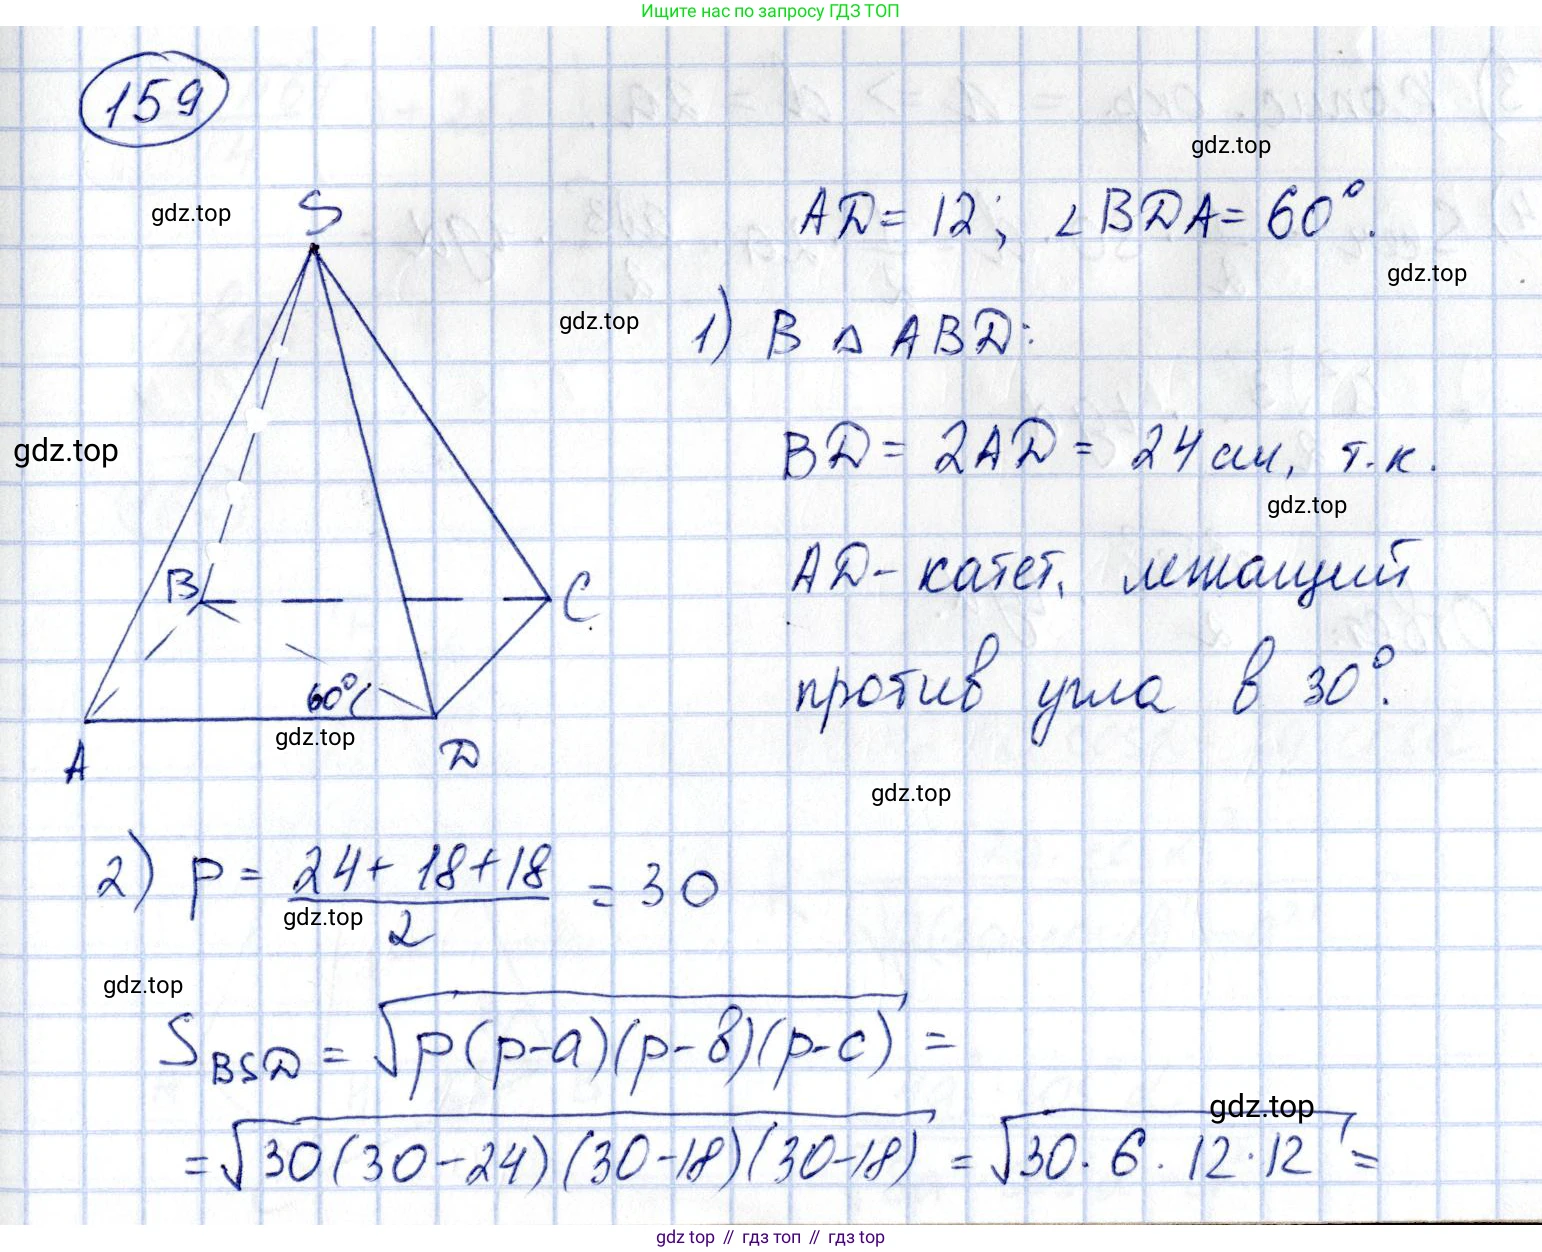 Ищите нас по запросу ГДЗ ТОП
159
gdz.top
gdz.top
S
AD = 12; ∠BDA = 60°.
gdz.top
gdz.top
1) В △ ABD:
gdz.top
BD = 2AD = 24 см, т.к.
gdz.top
AD - катет, лежащий
B
C
против угла в 30°.
60°
gdz.top
A
D
gdz.top
2) p = (24 + 18 + 18)/2 = 30
gdz.top
gdz.top
S_BSD = √(p(p-a)(p-b)(p-c)) =
gdz.top
= √(30(30-24)(30-18)(30-18)) = √(30·6·12·12) =
gdz.top // гдз топ // гдз top